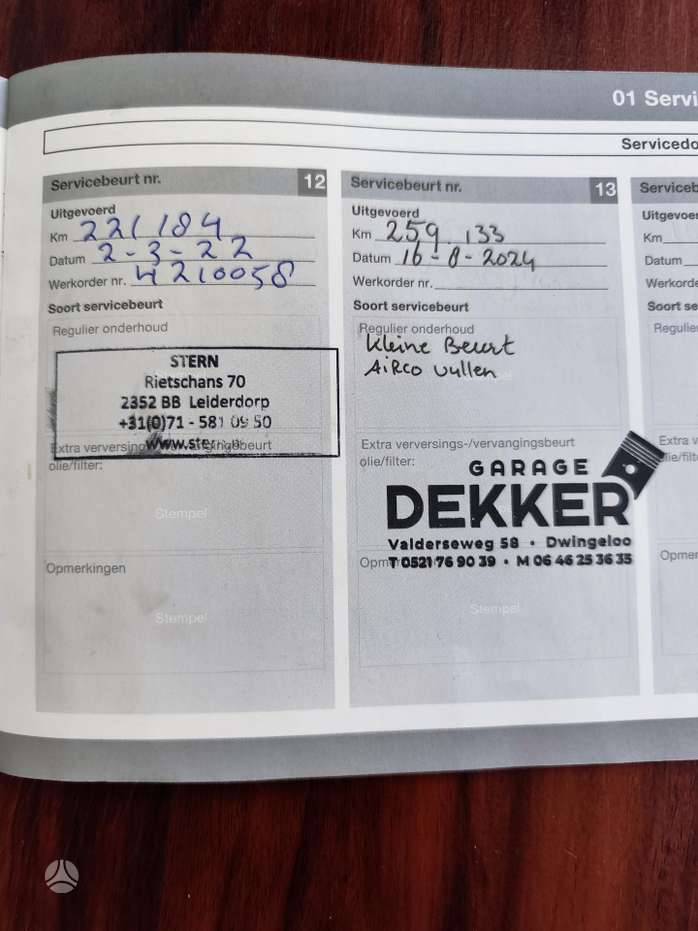 01 Servi
Servicedo
Servicebeurt nr. 12
Uitgevoerd
Km 221184
Datum 2-3-22
Werkorder nr. 4210058
Soort servicebeurt
Regulier onderhoud
STERN
Rietschans 70
2352 BB Leiderdorp
+31(0)71 - 581 09 50
Extra verversings-/vervangingsbeurt
olie/filter:
Stempel
Opmerkingen
Stempel
Servicebeurt nr. 13
Uitgevoerd
Km 259 133
Datum 16-8-2024
Werkorder nr.
Soort servicebeurt
Regulier onderhoud
Kleine Beurt
AiRCO vullen
Extra verversings-/vervangingsbeurt
olie/filter:
GARAGE
DEKKER
Valderseweg 58 • Dwingeloo
T 0521 76 90 39 • M 06 46 25 36 35
Stempel
Serviceb
Uitgevoer
Km
Datum
Werkorde
Soort se
Regulie
Extra v
olie/filt
Opmer